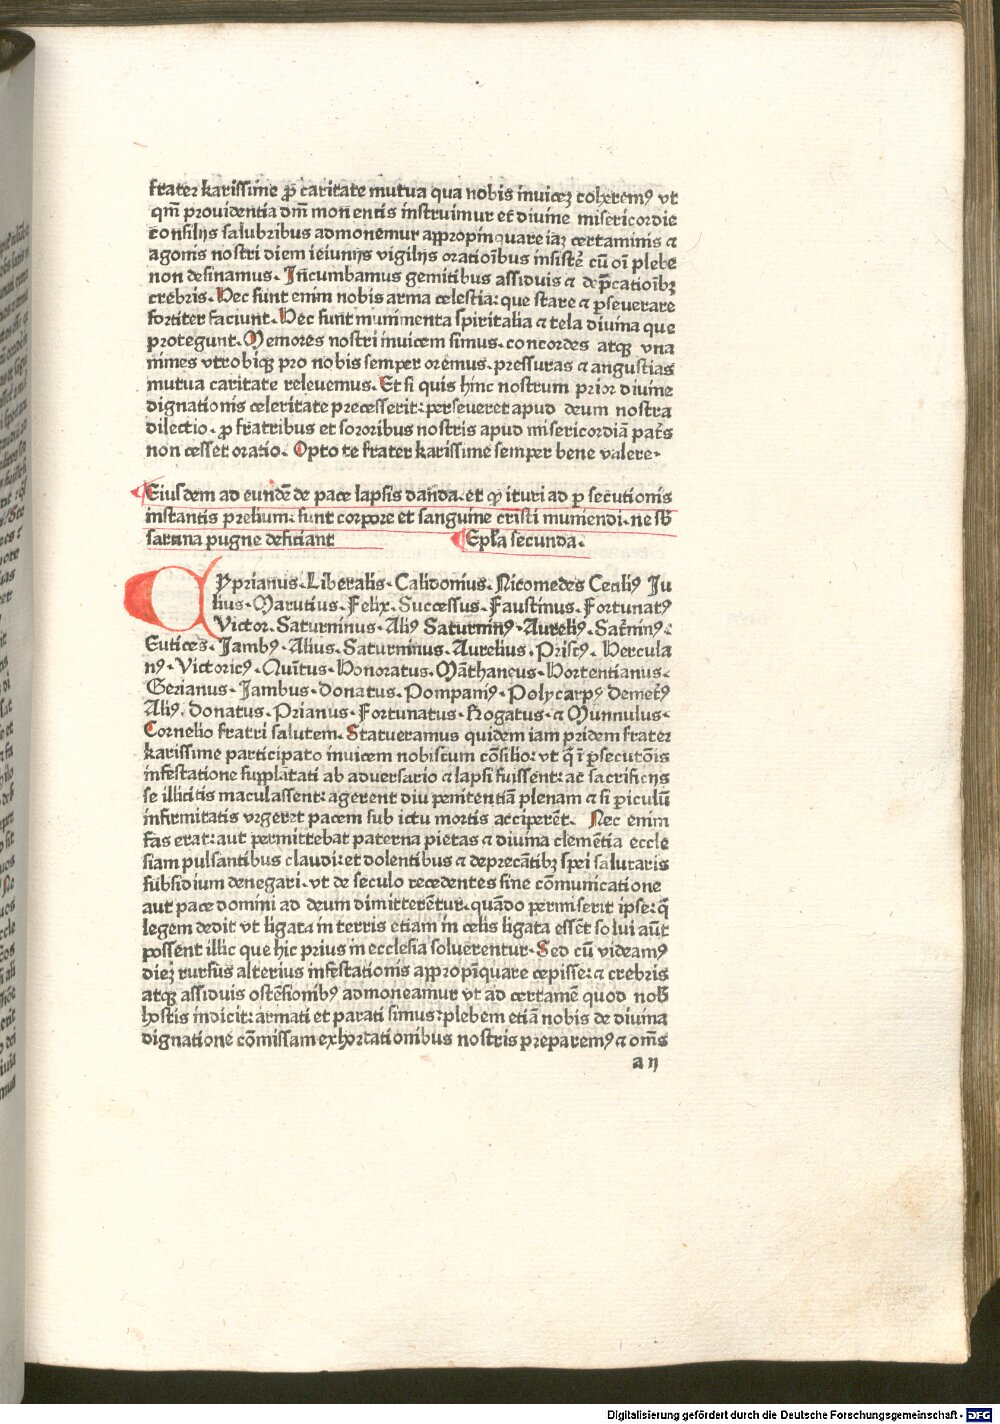 frater karissime ꝓ caritate mutua qua nobis inuiceꝫ coheremꝰ vt
qm̄ prouidentia dn̄i monentis instruimur et diuine misericordie
consilijs salubribus admonemur appropinquare iaꝫ certaminis ⁊
agonis nostri diem ieiunijs vigilijs orationibus insistē cū oī plebe
non desinamus. Incumbamus gemitibus assiduis ⁊ dep̄catioībꝫ
crebris. Hec sunt enim nobis arma celestia: que stare ⁊ ꝑseuerare
fortiter faciunt. Hec sunt munimenta spiritalia ⁊ tela diuina que
protegunt. Memores nostri inuicem simus. concordes atqꝫ vna
nimes vtrobiqꝫ pro nobis semper oremus. pressuras ⁊ angustias
mutua caritate releuemus. Et si quis hinc nostrum prior diuine
dignationis celeritate precesserit: perseueret apud deum nostra
dilectio. ꝓ fratribus et sororibus nostris apud misericordiā patrꝭ
non cesset oratio. Opto te frater karissime semper bene valere.
Eiusdem ad eundē de pace lapsis danda. et ꝙ ituri ad ꝑsecutionis
instantis prelium. sunt corpore et sanguine cristi muniendi. ne sb̄
sarcina pugne deficiant Epl̄a secunda.
CYprianus. Liberalis. Calidonius. Nicomedes Ceciliꝰ Ju
lius. Marutius. Felix. Successus. Faustinus. Fortunatꝰ
Victor. Saturninus. Aliꝰ Saturninꝰ. Aureliꝰ. Sat̄ninꝰ.
Eutices. Jambꝰ. Alius. Saturninus. Aurelius. Priscꝰ. Hercula
nꝰ. Victoricꝰ. Quītus. Honoratus. Māthaneus. Hortentianus.
Gerianus. Jambus. donatus. Pompaniꝰ. Polycarpꝰ demetꝰ
Aliꝰ. donatus. Prianus. Fortunatus. Rogatus. ⁊ Munnulus.
Cornelio fratri salutem. Statueramus quidem iam pridem frater
karissime participato inuicem nobiscum cōsilio: vt q̄ ī ꝑsecutōis
infestatione supplātati ab aduersario ⁊ lapsi fuissent: ac sacrificijs
se illicitis maculassent: agerent diu penitentiā plenam ⁊ si ꝑiculū
infirmitatis vrgeret pacem sub ictu mortis acciperēt. Nec enim
fas erat: aut permittebat paterna pietas ⁊ diuina clemētia eccle
siam pulsantibus claudi: et dolentibus ⁊ deprecātibꝫ spei salutaris
subsidium denegari. vt de seculo recedentes sine cōmunicatione
aut pace domini ad deum dimitterētur. quādo permiserit ipse: q̄
legem dedit vt ligata in terris etiam in celis ligata essēt solui aūt
possent illic que hic prius in ecclesia soluerentur. Sed cū videamꝰ
dieꝫ rursus alterius infestationis appropīquare cepisse: ⁊ crebris
atqꝫ assiduis ostēsionibꝰ admoneamur vt ad certamē quod nob̄
hostis indicit: armati et parati simus: plebem etiā nobis de diuina
dignatione cōmissam exhortationibus nostris preparemꝰ ⁊ om̄s
a ij
Digitalisierung gefördert durch die Deutsche Forschungsgemeinschaft - DFG